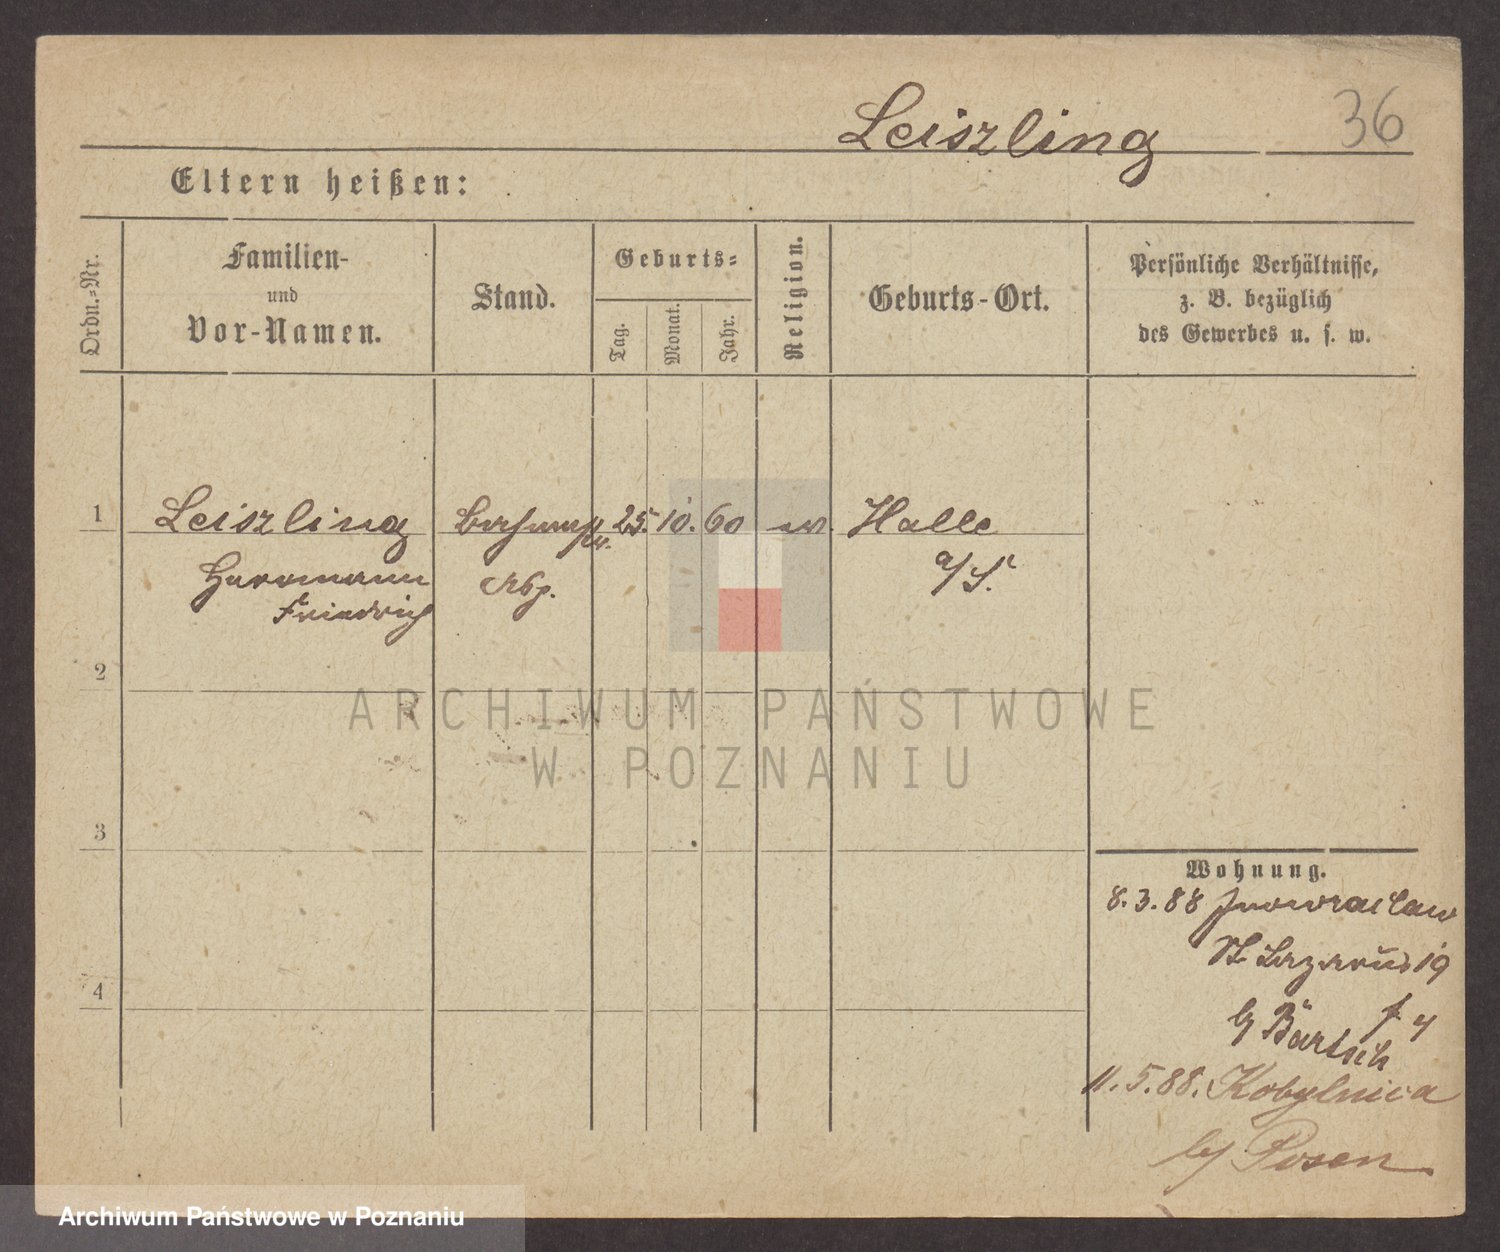 Leiszling
36
Eltern heißen:
Ordn.-Nr.
Familien-
und
Vor-Namen.
Stand.
Geburts-
Tag.
Monat.
Jahr.
Religion.
Geburts-Ort.
Persönliche Verhältnisse,
z. B. bezüglich
des Gewerbes u. s. w.
1 Leiszling 25. 10. 60 ev. Halle
Herrmann a/S.
Friedrich
2
ARCHIWUM PAŃSTWOWE
W POZNANIU
3
Wohnung.
8.3.88 Inowraclaw
St Lazarus 19
b/ Bartsch
4
11.5.88. Kobylnica
b/ Posen
Archiwum Państwowe w Poznaniu